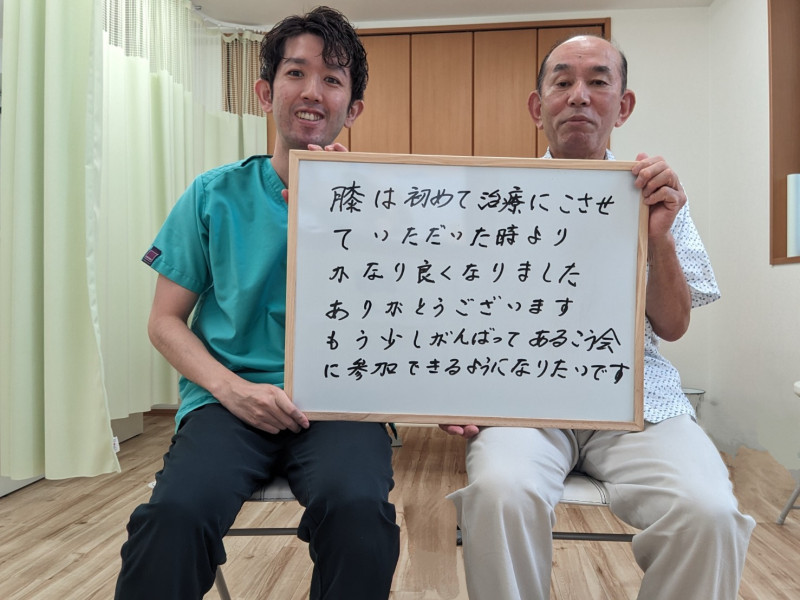 膝は初めて治療にこさせ
ていただいた時より
かなり良くなりました
ありがとうございます
もう少しがんばってあるこう会
に参加できるようになりたいです